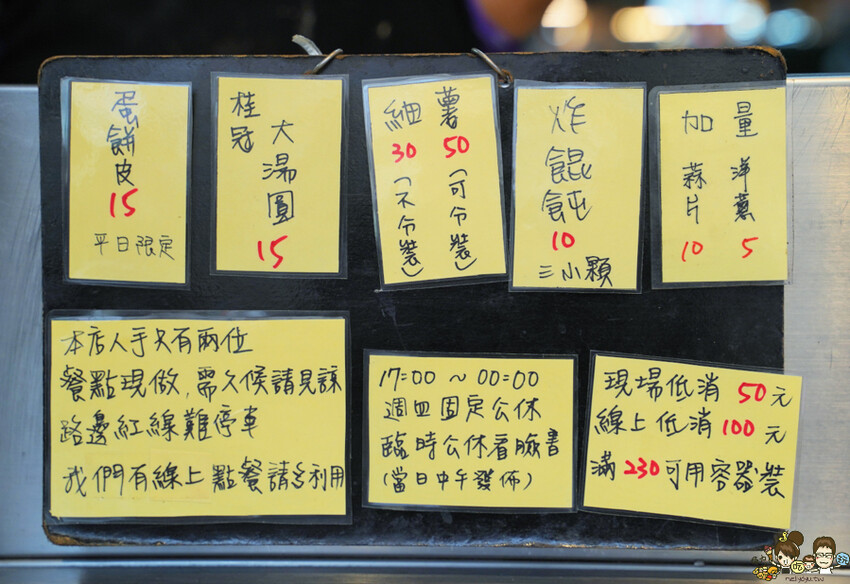 蛋餅皮
15
平日限定
桂冠
大湯圓
15
薯
50
(可分裝)
細
30
(不分裝)
炸餛飩
10
三小顆
加量
洋蔥
5
蒜片
10
本店人手只有兩位
餐點現做,需久候請見諒
路邊紅線難停車
我們有線上點餐請多利用
17:00～00:00
週四固定公休
臨時公休看臉書
(當日中午發佈)
現場低消50元
線上低消100元
滿230可用容器裝